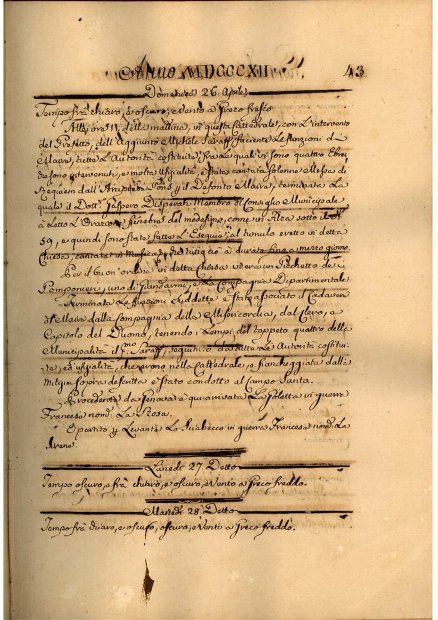 Anno MDCCCXII
43
Domenica 26 Aprile
Tempo frà chiaro, e oscuro, e Vento a Greco fresco
Alle, ore 11, della mattina, in questa Cattedrale, con L'intervento
del Prefetto, dell'Aggiunto Michele Saraff faciente Le funzioni di
Maire, tutte L'Autorità costituite, frà Le quali vi sono quattro Ebrei
che sono intervenuti, e molta Ufizialità, è stata cantata solenne Messa di
Requiem dall' al Defonto Maire, terminata La
quale il Dott. Gaspero Disperati Membro del Consiglio Municipale
à Letto L'Orazione funebre del medesimo, come in Filza sotto
59, e quindi sono state fatte L'Esequie al tumulo eretto in detta
Chiesa, cantata in Musica, e à durato fino a mezzo giorno.
Per il buon'ordine in detta Chiesa vi era un Picchetto de i
Pomponieri, uno di Giandarmi, e La Compagnia Dipartimentale
Terminata Le funzioni suddette è stato associato il Cadavere
del Maire dalla Compagnia della Misericordia, dal Clero, e
Capitolo del Duomo, tenendo i Lempi del tappeto quattro della
Municipalità il Saraff, seguitato da tutte Le Autorità costitui-
te, ed ufizialità, che erono nella Cattedrale, e fiancheggiato dalle
Milizie sopra descritte è stato condotto al Campo Santo.
Procedente da è qui arrivata La Goletta in guerra
Francese nom. La Rosa.
È partito p Levante Lo Sciabecco in guerra Francese nom. La
Lunedì 27 Detto
Tempo oscuro, e frà chiaro, e oscuro, e Vento a Greco freddo.
Martedì 28 Detto
Tempo frà chiaro, e oscuro, oscuro, e Vento a Greco freddo.